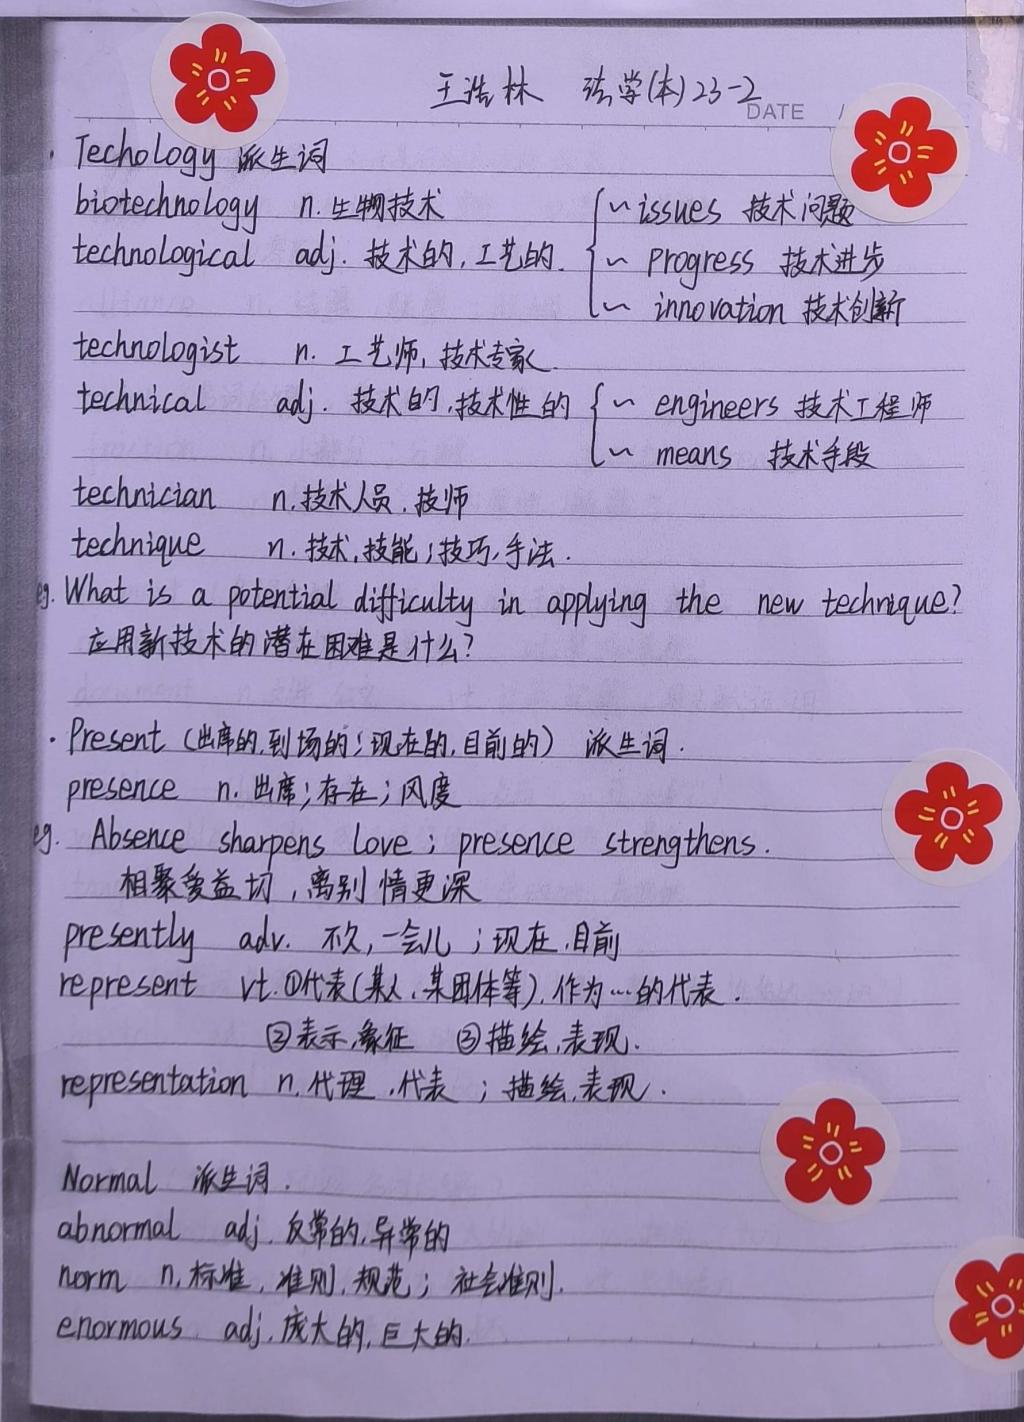 王浩林 法学(本)23-2
DATE /
· Techology 派生词
biotechnology n. 生物技术 ~ issues 技术问题
technological adj. 技术的, 工艺的. { ~ progress 技术进步
~ innovation 技术创新
technologist n. 工艺师, 技术专家.
technical adj. 技术的, 技术性的 { ~ engineers 技术工程师
~ means 技术手段
technician n. 技术人员. 技师
technique n. 技术, 技能; 技巧, 手法.
eg. What is a potential difficulty in applying the new technique?
应用新技术的潜在困难是什么?
· Present (出席的, 到场的; 现在的, 目前的) 派生词.
presence n. 出席; 存在; 风度
eg. Absence sharpens love; presence strengthens.
相聚爱益切, 离别情更深
presently adv. 不久, 一会儿; 现在, 目前
represent vt. ①代表(某人, 某团体等), 作为…的代表.
②表示, 象征 ③描绘, 表现.
representation n. 代理, 代表; 描绘, 表现.
Normal 派生词.
abnormal adj. 反常的, 异常的
norm n. 标准, 准则, 规范; 社会准则.
enormous adj. 庞大的, 巨大的.